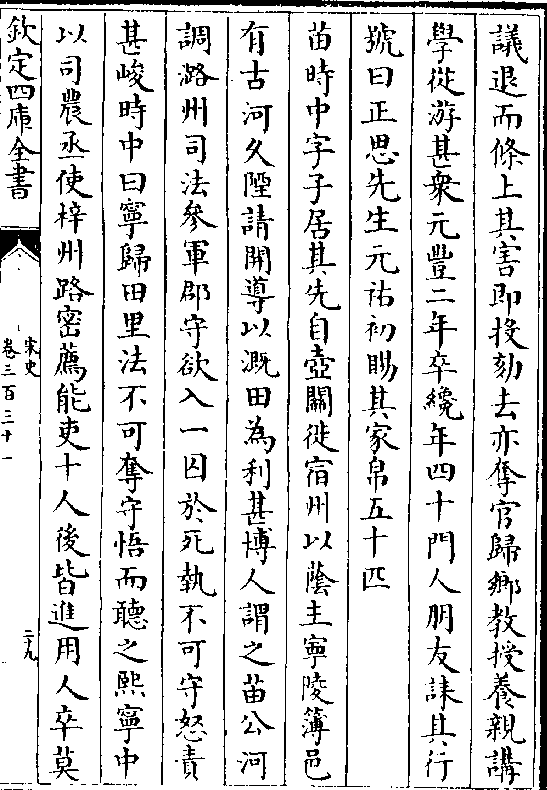 議退而條上其害即投劾去亦奪官歸鄉教授養親講
學從游甚衆元豐二年卒纔年四十門人朋友誄其行
號曰正思先生元祐初賜其家帛五十匹
苗時中字子居其先自壺關徙宿州以蔭主寧陵簿邑
有古河久陻請開導以溉田為利甚博人謂之苗公河
調潞州司法參軍郡守欲入一囚於死執不可守怒責
甚峻時中曰寧歸田里法不可奪守悟而聽之熙寧中
以司農丞使梓州路密薦能吏十人後皆進用人卒莫
欽定四庫全書
宋史
卷三百三十一
二九